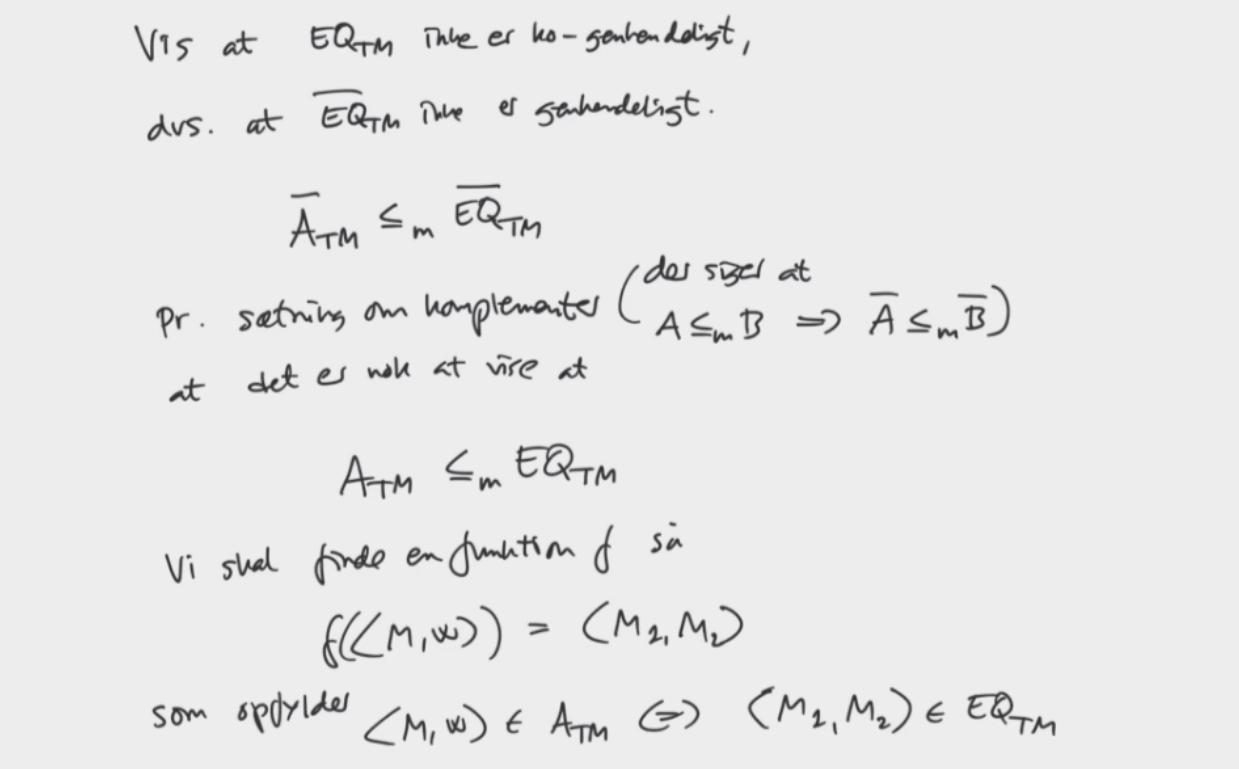 Vis at EQ_TM ikke er ko-genkendeligt,
dvs. at \overline{EQ}_TM ikke er genkendeligt.
\overline{A}_TM ≤_m \overline{EQ}_TM
Pr. sætning om komplementer (der siger at
A ≤_m B ⇒ \overline{A} ≤_m \overline{B})
at det er nok at vise at
A_TM ≤_m EQ_TM
Vi skal finde en funktion f så
f(⟨M,w⟩) = ⟨M_1, M_2⟩
som opfylder ⟨M,w⟩ ∈ A_TM ⇔ ⟨M_1, M_2⟩ ∈ EQ_TM